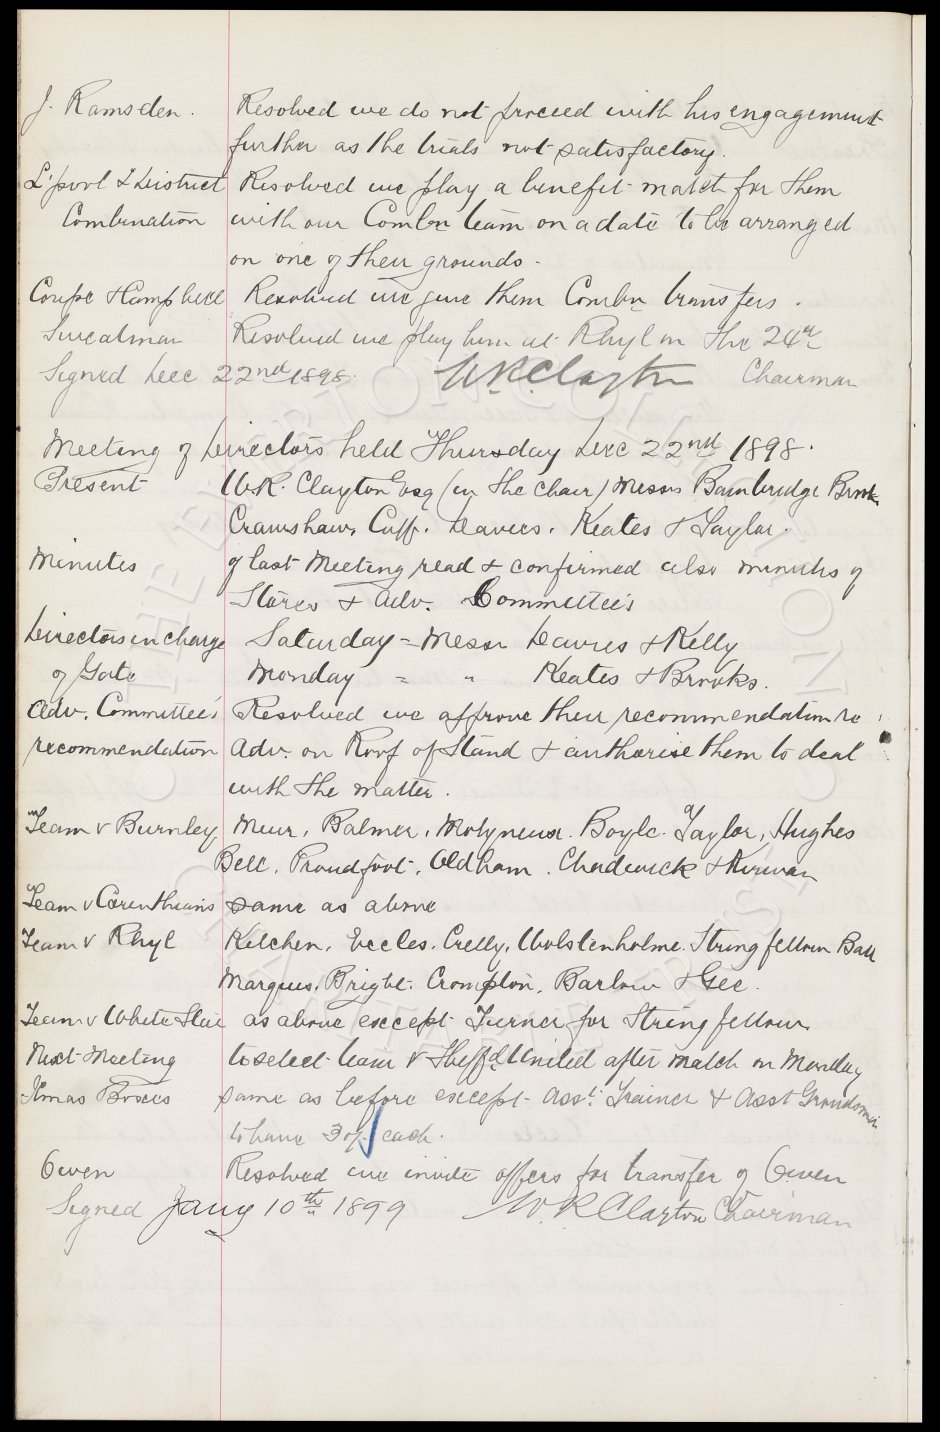 J. Ramsden. Resolved we do not proceed with his engagement
further as the trials not satisfactory.
L'pool & District Resolved we play a benefit match for them
Combination with our Combn team on a date to be arranged
on one of their grounds.
Coupe & Campbell Resolved we give them Combn transfers.
Sweatman Resolved we play him at Rhyl on the 24th
Signed Dec 22nd 1898. W.R. Clayton Chairman
Meeting of Directors held Thursday Dec 22nd 1898.
Present W.R. Clayton Esq (in the chair) Messrs Bainbridge Brooks
Crawshaw, Cuff. Davies. Keates & Taylor.
Minutes of last Meeting read & confirmed also minutes of
Stores & Adv. Committees
Directors in charge Saturday = Messrs Davies & Kelly
of Gate Monday = " Keates & Brooks.
Adv. Committee's Resolved we approve their recommendation re
recommendation Adv. on Roof of Stand & authorise them to deal
with the matter.
Team v Burnley Muir, Balmer, Molyneux. Boyle. Taylor, Hughes
Bell, Proudfoot. Oldham. Chadwick & Kirwan
Team v Corinthians same as above
Team v Rhyl Kitchen, Eccles, Crelly, Wolstenholme. Stringfellow Ball
Marques, Bright. Crompton, Barlow & Gee.
Team v White Star as above except Turner for Stringfellow
Next Meeting to select team v Sheffd United after match on Monday
Xmas Boxes same as before except Asst. Trainer & Asst Groundsman
to have 30/- each.
Owen Resolved we invite offers for transfer of Owen
Signed Jany 10th 1899 W. R Clayton Chairman